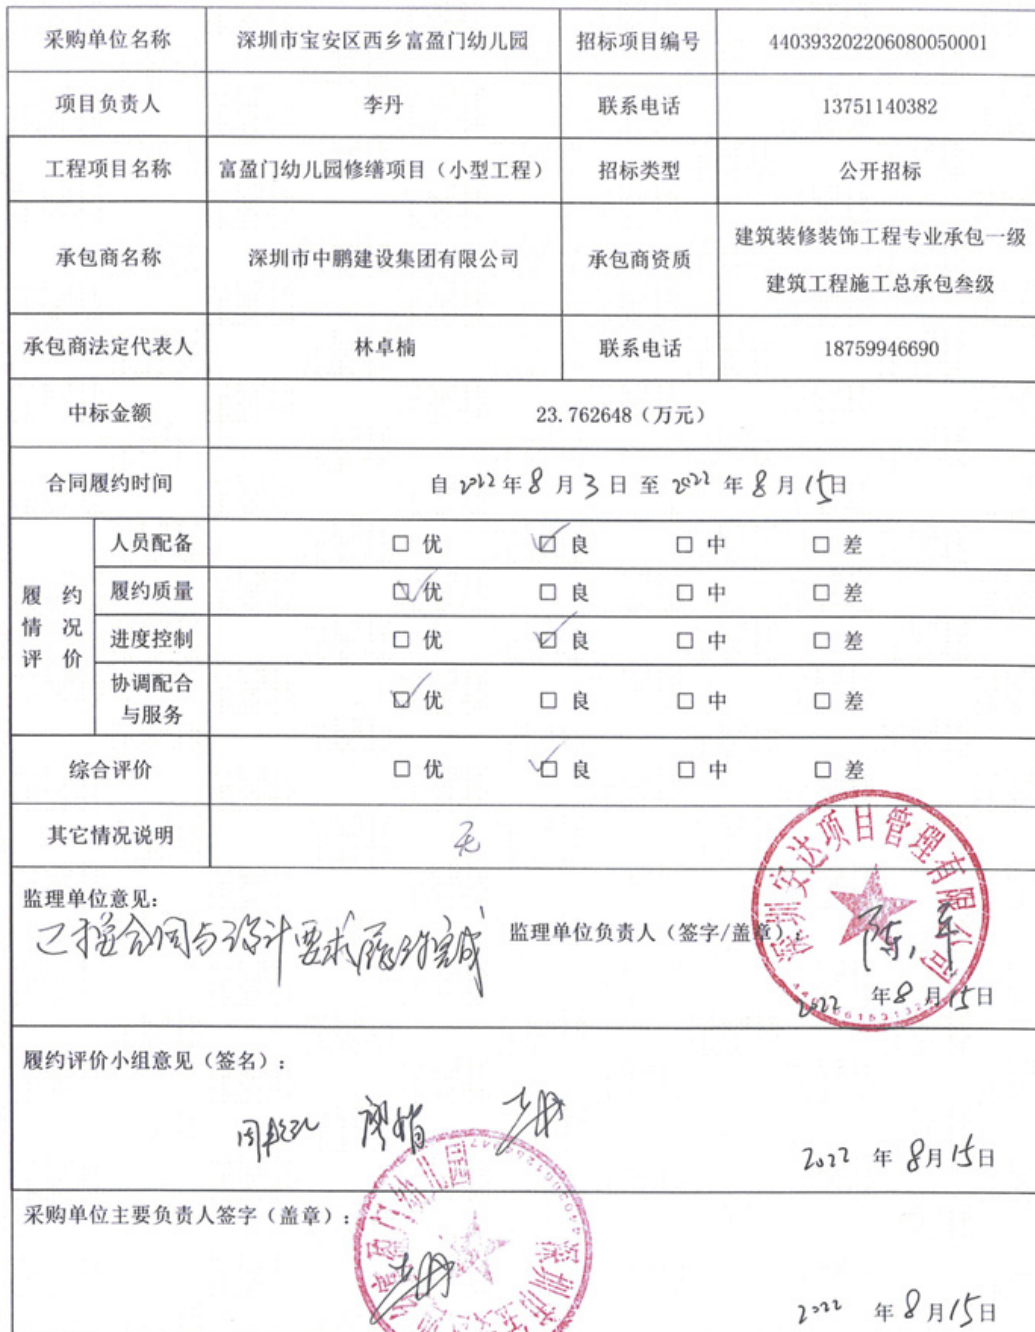 采购单位名称 深圳市宝安区西乡富盈门幼儿园 招标项目编号 440393202206080050001
项目负责人 李丹 联系电话 13751140382
工程项目名称 富盈门幼儿园修缮项目（小型工程） 招标类型 公开招标
承包商名称 深圳市中鹏建设集团有限公司 承包商资质 建筑装修装饰工程专业承包一级
建筑工程施工总承包叁级
承包商法定代表人 林卓楠 联系电话 18759946690
中标金额 23.762648（万元）
合同履约时间 自 2022 年 8 月 3 日 至 2022 年 8 月 15 日
履约情况评价
人员配备 □ 优 ☑ 良 □ 中 □ 差
履约质量 ☑ 优 □ 良 □ 中 □ 差
进度控制 □ 优 ☑ 良 □ 中 □ 差
协调配合
与服务 ☑ 优 □ 良 □ 中 □ 差
综合评价 □ 优 ☑ 良 □ 中 □ 差
其它情况说明 无
监理单位意见：
已按合同与设计要求履约完成
监理单位负责人（签字/盖章）：
深圳安达项目管理有限公司
陈军
2022 年 8 月 15 日
履约评价小组意见（签名）：
李丹
2022 年 8 月 15 日
采购单位主要负责人签字（盖章）：
李丹
2022 年 8 月 15 日